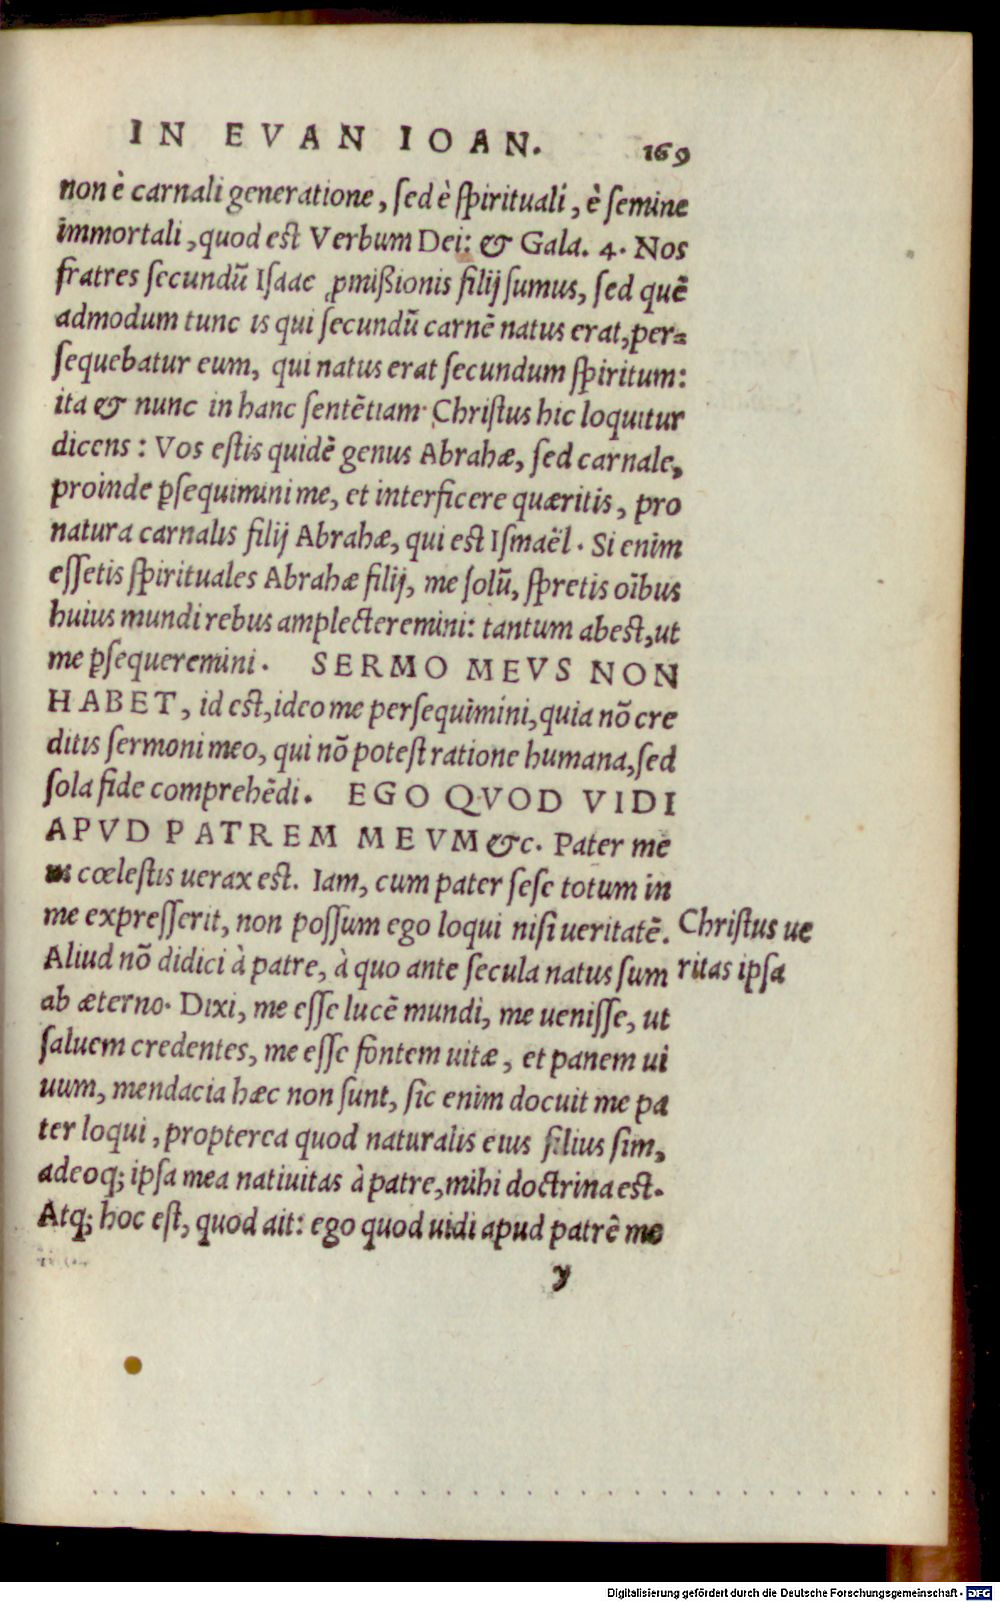 IN EVAN IOAN. 169
non è carnali generatione, ſed è ſpirituali, è ſemine
immortali, quod est Verbum Dei: & Gala. 4. Nos
fratres ſecundũ Iſaac ꝓmißionis filij ſumus, ſed quẽ
admodum tunc is qui ſecundũ carnẽ natus erat, per=
ſequebatur eum, qui natus erat ſecundum ſpiritum:
ita & nunc in hanc ſentẽtiam Chriſtus hic loquitur
dicens: Vos eſtis quidẽ genus Abrahæ, ſed carnale,
proinde ꝑſequimini me, et interficere quæritis, pro
natura carnalis filij Abrahæ, qui est Iſmaël. Si enim
eſſetis ſpirituales Abrahæ filij, me ſolũ, ſpretis oĩbus
huius mundi rebus amplecteremini: tantum abest, ut
me ꝑſequeremini. SERMO MEVS NON
HABET, id est, ideo me perſequimini, quia nõ cre
ditis ſermoni meo, qui nõ poteſt ratione humana, ſed
ſola fide comprehẽdi. EGO QVOD VIDI
APVD PATREM MEVM &c. Pater me
us cœleſtis uerax est. Iam, cum pater ſeſe totum in
me expreſſerit, non poſſum ego loqui niſi ueritatẽ.
Aliud nõ didici à patre, à quo ante ſecula natus ſum
ab æterno. Dixi, me eſſe lucẽ mundi, me ueniſſe, ut
ſaluem credentes, me eſſe fontem uitæ, et panem ui
uum, mendacia hæc non ſunt, ſic enim docuit me pa
ter loqui, propterea quod naturalis eius filius ſim,
adeoq; ipſa mea natiuitas à patre, mihi doctrina est.
Atq; hoc eſt, quod ait: ego quod uidi apud patrẽ me
y
Chriſtus ue
ritas ipſa
Digitalisierung gefördert durch die Deutsche Forschungsgemeinschaft - DFG